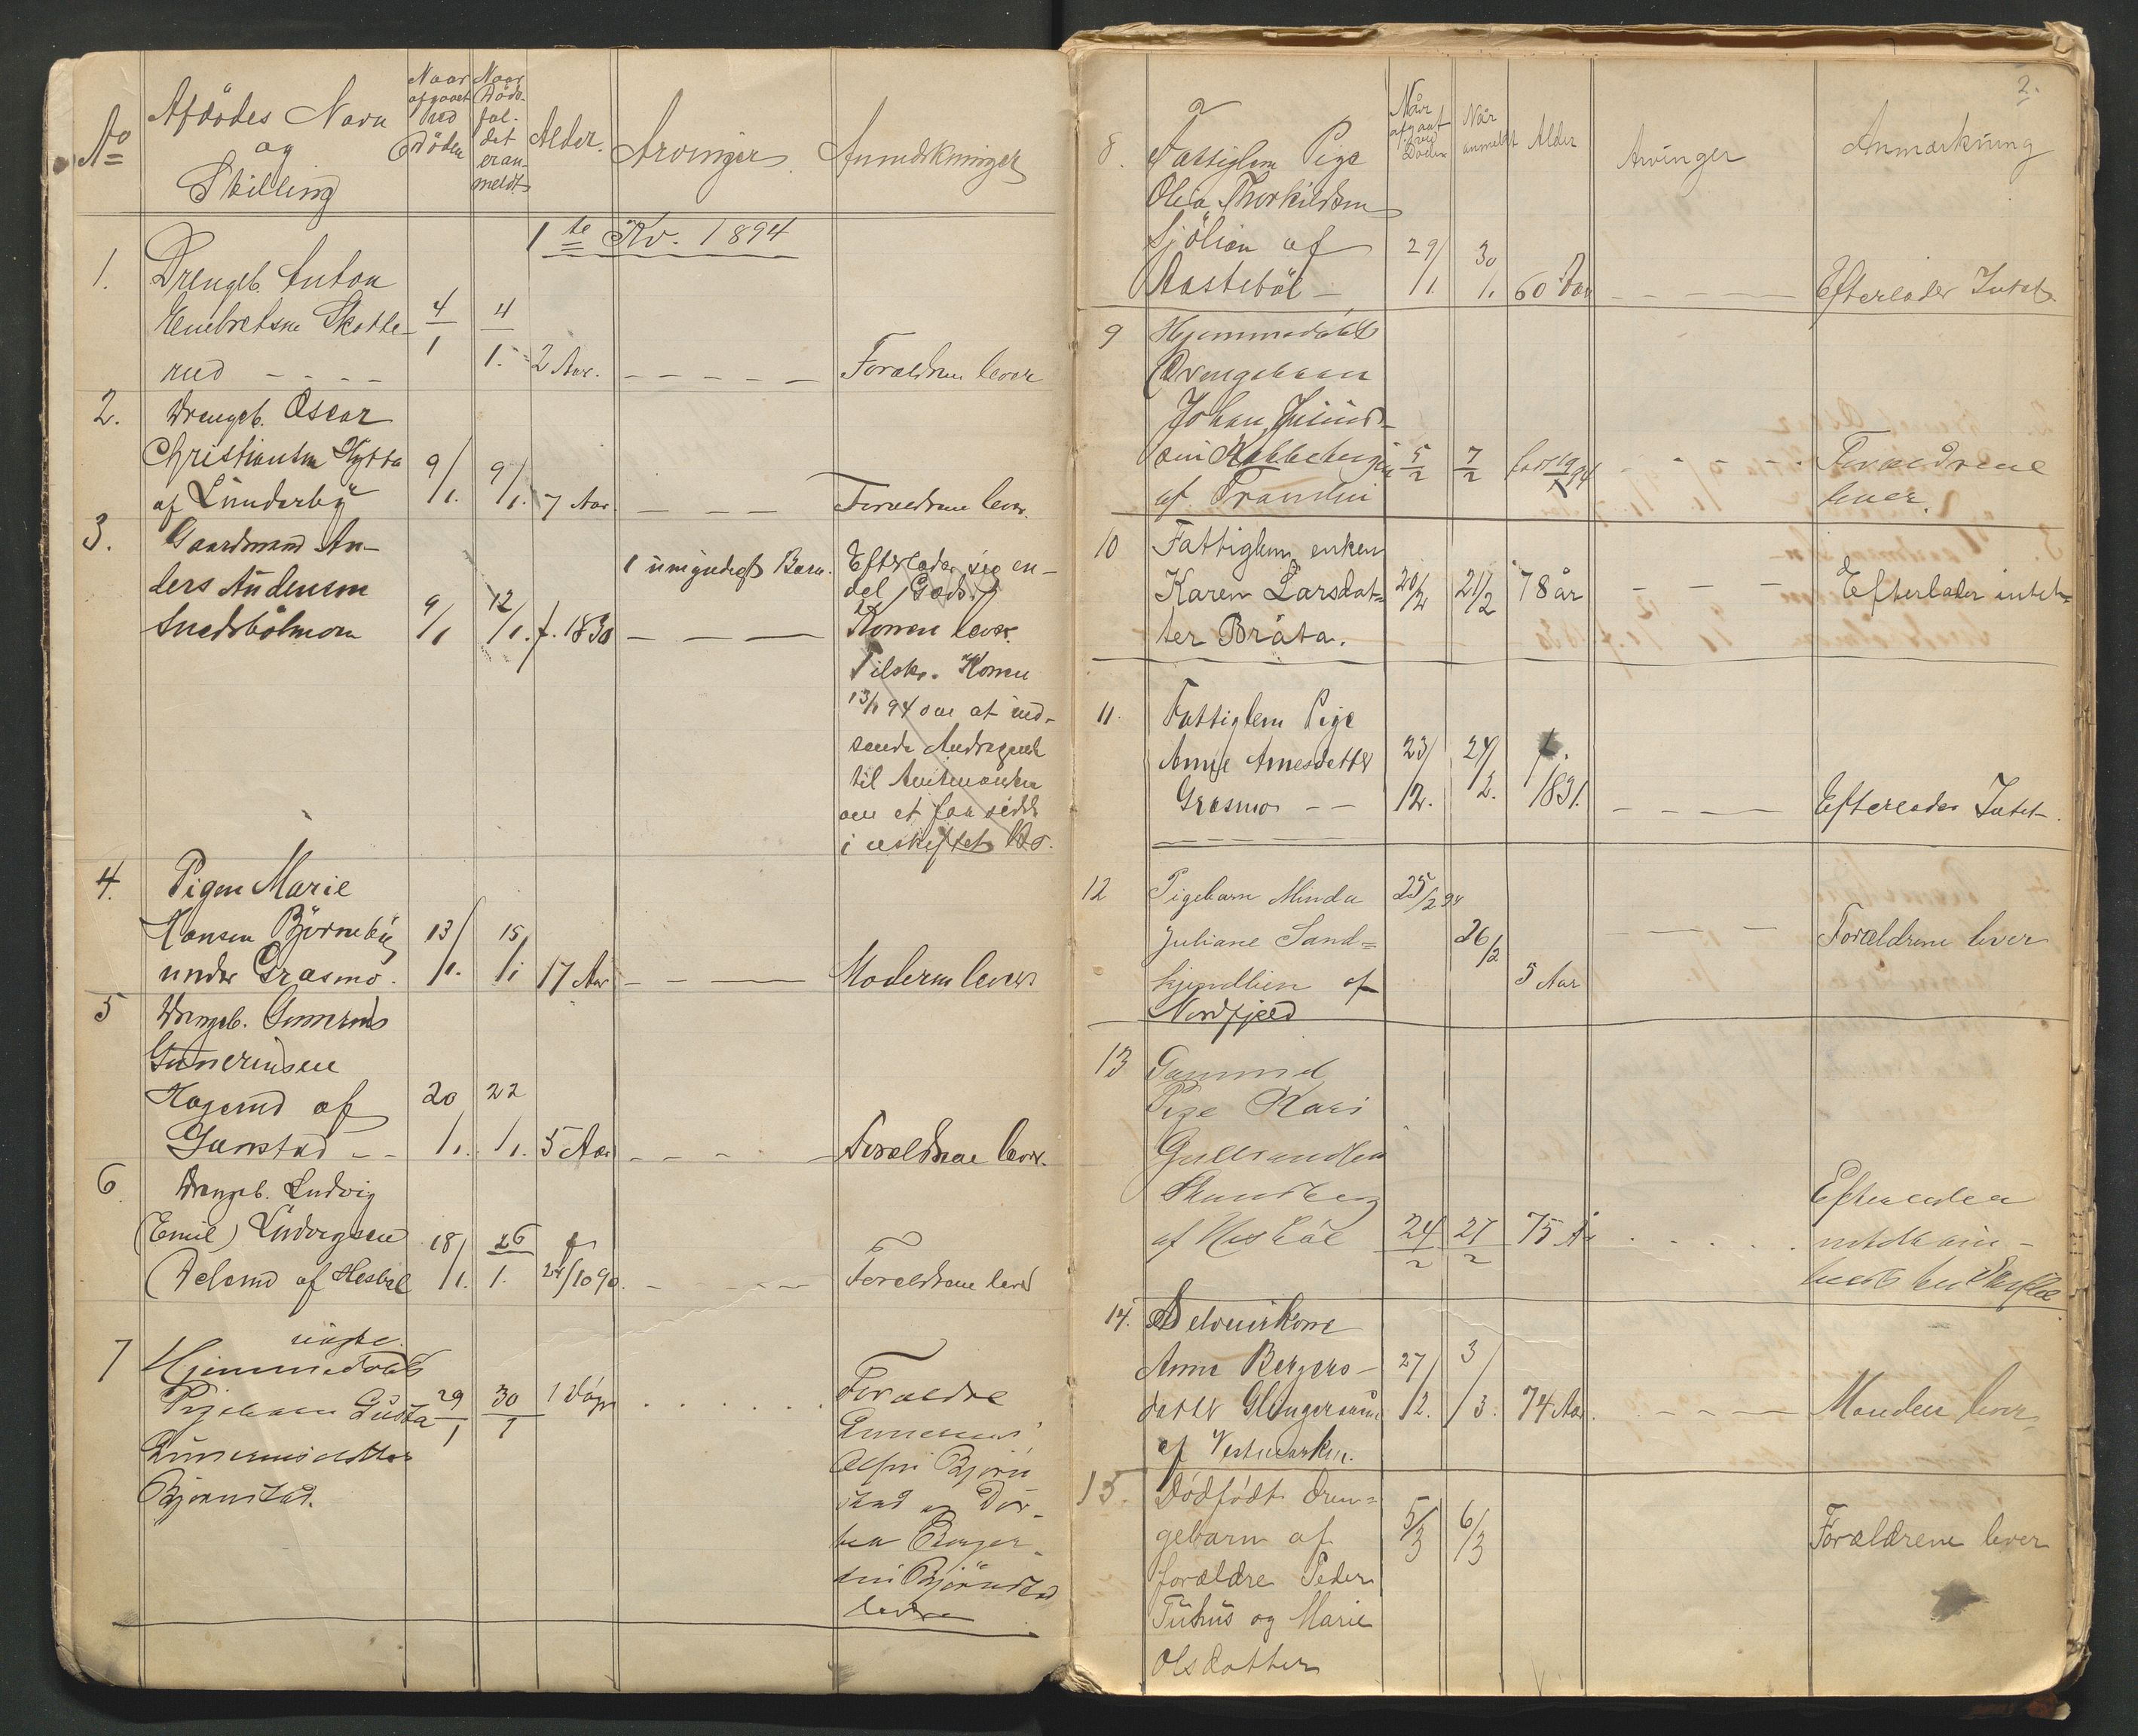 No
Afdödes Navn
og
Stilling
Naar
afgaaet
ved
Döden
Naar
Döds-
fal-
det
er an-
meldt
Alder.
Arvinger.
Anmærkninger
1te Kv. 1894
1.
Drengb. Anton
Embretsen Skotte-
rud - - - -
4/1
4/1.
2 Aar.
Forældrene lever
2.
Drengb. Oscar
Christiansen Hytta
af Lunderby
9/1.
9/1.
7 Aar.
Forældrene lever.
3.
Gaardmand An-
ders Audensen
Snedsbölmoen
9/1
12/1.
f. 1830
1 umyndigt Barn.
Efterlader sig en-
del Gods.
Konen lever.
Tilskr. Konen
13/1 94 om at ind-
sende Andragende
til Amtmanden
om at faa sidde
i uskiftet Bo.
4.
Pigen Marie
Hansen Björneby
under Grasmo.
13/1.
15/1
17 Aar
Moderen lever
5
Drengb. Gunerius
Guneriussen
Hagerud af
- -
20/1.
22/1.
5 Aar
Forældrene lever.
6
Drengb. Ludvig
(Emil) Ludvigsen
af Hesböl
18/1.
26/1.
f
24/10 90.
Forældrene lever
7
uægte.
Hjemmedöbt
Pigebarn Gusta
Guneriusdatter
Björnstad.
29/1
30/1
1 Dögn
Forældre
Gunerius
Björn
stad og Dor-
thea Berger-
sen Björnstad
lever
2.
8.
Fattiglem Pige
Olia Thorkildsen
Sjölien af
Aasteböl -
Når
afgaat
ved
Döden
Når
anmeldt
Alder
Arvinger
Anmærkning
29/1.
30/1.
60 Aar
Efterlader Intet.
9
Hjemmedöbt
Drengebarn
Johan
af
5/2
7/2
född 19/1 94
Forældrene
lever.
10
Fattiglem enken
Karen Larsdat=
ter Bråta.
20/2
21/2
78 år
Efterlader intet
11.
Fattiglem Pige
Anne Arnesdatter
Grasmo - -
23/2.
24/2.
f.
1831.
Efterlader Intet.
12
Pigebarn Minda
Juliane Sand=
kjendlien af
Nordfjeld
25/2 94
26/2
5 Aar
Forældrene lever
13
Gammel
Pige Kari
Gulbrandsen
Strandberg
af Hesböl
24/2
27/2
75 År
Efterlader
14.
Selveierkone
Anna Bergers-
datter
af Vestmarken.
27/2.
3/3.
74 Aar.
Manden lever
15.
Dödfödt dren=
gebarn af
forældre Peder
Tuhus og Marie
Olsdatter
5/3
6/3
Forældrene lever